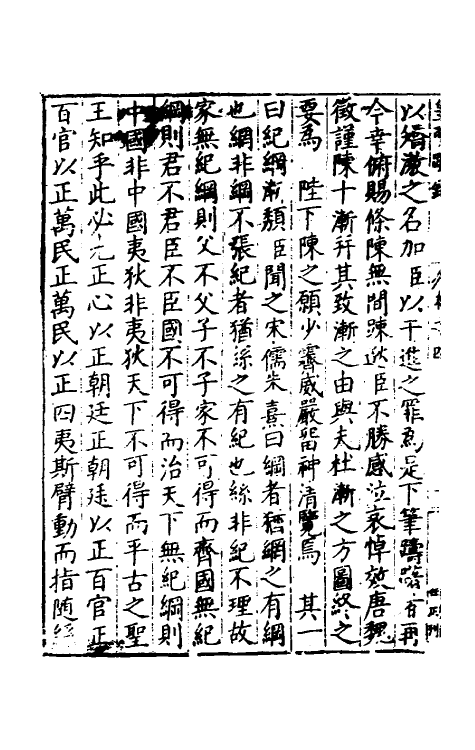 以矯激之名加臣以干進之罪為是下筆躊躇有再
今幸俯賜條陳無間踈逖臣不勝感泣哀悼效唐魏
徵謹陳十漸幷其致漸之由與夫杜漸之方圖終之
要為 陛下陳之願少霽威嚴留神清覽焉 其一
曰紀綱漸頹臣聞之宋儒朱熹曰綱者猶網之有綱
也網非綱不張紀者猶絲之有紀也絲非紀不理故
家無紀綱則父不父子不子家不可得而齊國無紀
綱則君不君臣不臣國不可得而治天下無紀綱則
中國非中國夷狄非夷狄天下不可得而平古之聖
王知乎此必先正心以正朝廷正朝廷以正百官正
百官以正萬民正萬民以正四夷斯臂動而指隨